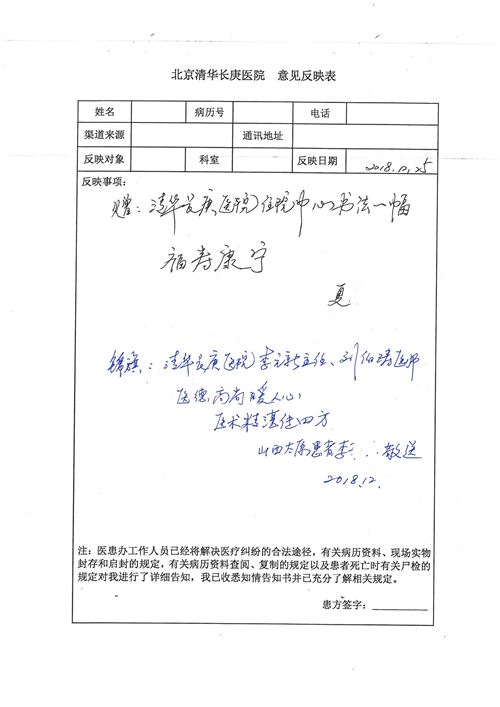 北京清华长庚医院　意见反映表
姓名 病历号 电话
渠道来源 通讯地址
反映对象 科室 反映日期 2018.12.25
反映事项：
赠：清华长庚医院住院中心书法一幅
福寿康宁
夏
锦旗：清华长庚医院李元新主任、刘伯涛医师
医德高尚暖人心
医术精湛传四方
山西太原患者李 敬送
2018.12.
注：医患办工作人员已经将解决医疗纠纷的合法途径，有关病历资料、现场实物
封存和启封的规定，有关病历资料查阅、复制的规定以及患者死亡时有关尸检的
规定对我进行了详细告知，我已收悉知情告知书并已充分了解相关规定。
患方签字：